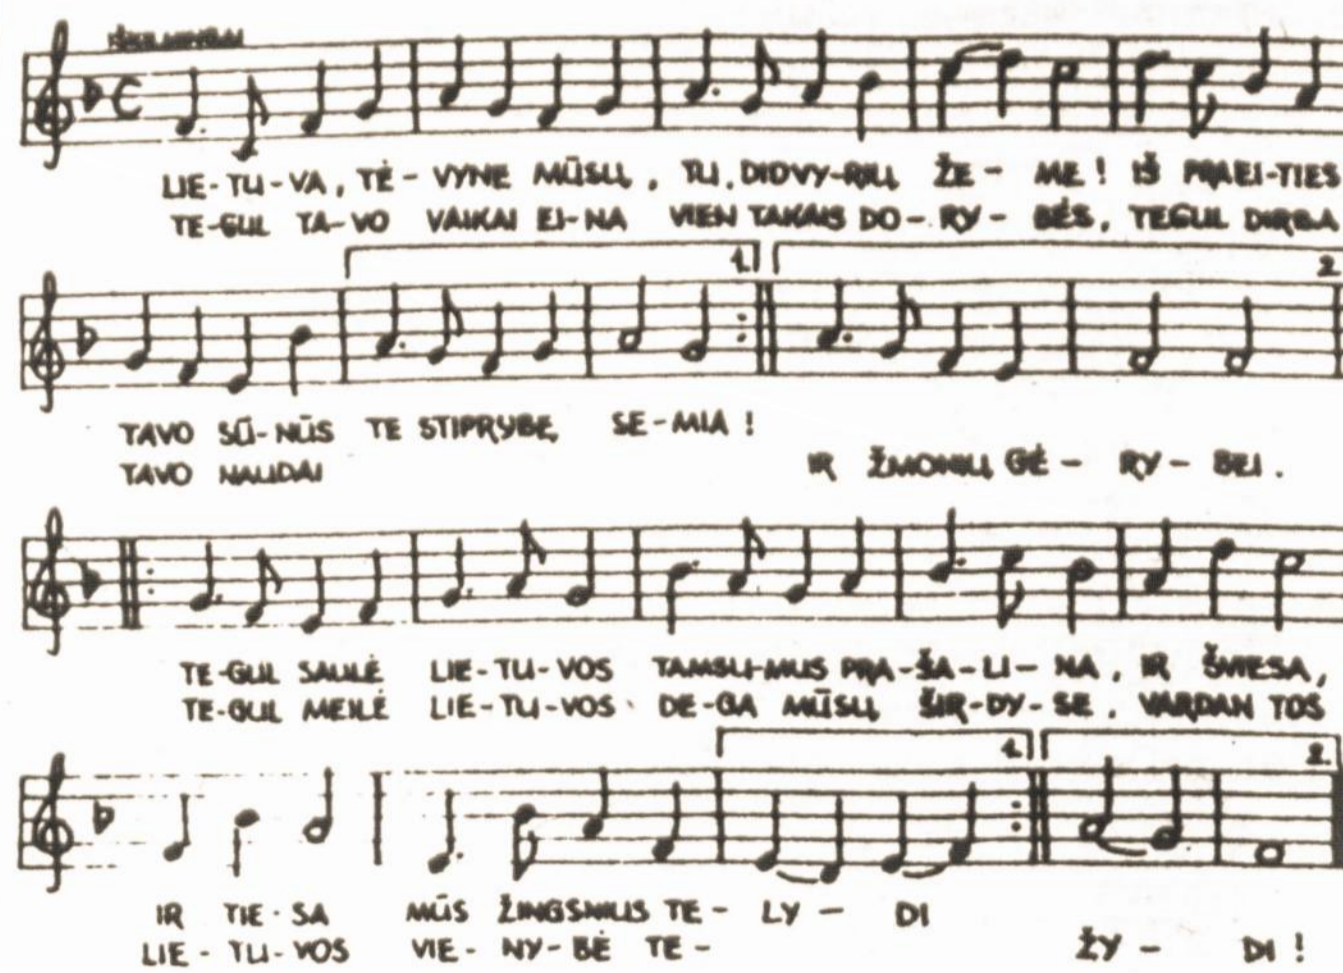 IŠKILMINGAI
LIE-TU-VA, TĖ-VYNE MŪSŲ, TU, DIDVY-RIŲ ŽE- ME! IŠ PRAEI-TIES
TE-GUL TA-VO VAIKAI EI-NA VIEN TAKAIS DO-RY-BĖS, TEGUL DIRBA
1. 2.
TAVO SŪ-NŪS TE STIPRYBĘ SE-MIA!
TAVO NAUDAI IR ŽMONIŲ GĖ- RY- BEI.
TE-GUL SAULĖ LIE-TU-VOS TAMSU-MUS PRA-ŠA-LI-NA, IR ŠVIESA,
TE-GUL MEILĖ LIE-TU-VOS DE-GA MŪSŲ ŠIR-DY-SE, VARDAN TOS
1. 2.
IR TIE-SA MŪS ŽINGSNIUS TE- LY- DI
LIE-TU-VOS VIE-NY-BĖ TE- ŽY- DI!